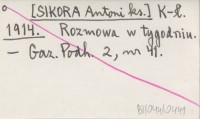 [SIKORA Antoni ks.] K-ł.
1914. Rozmowa w tygodniu.
— Gaz. Podh. 2, nr 41.